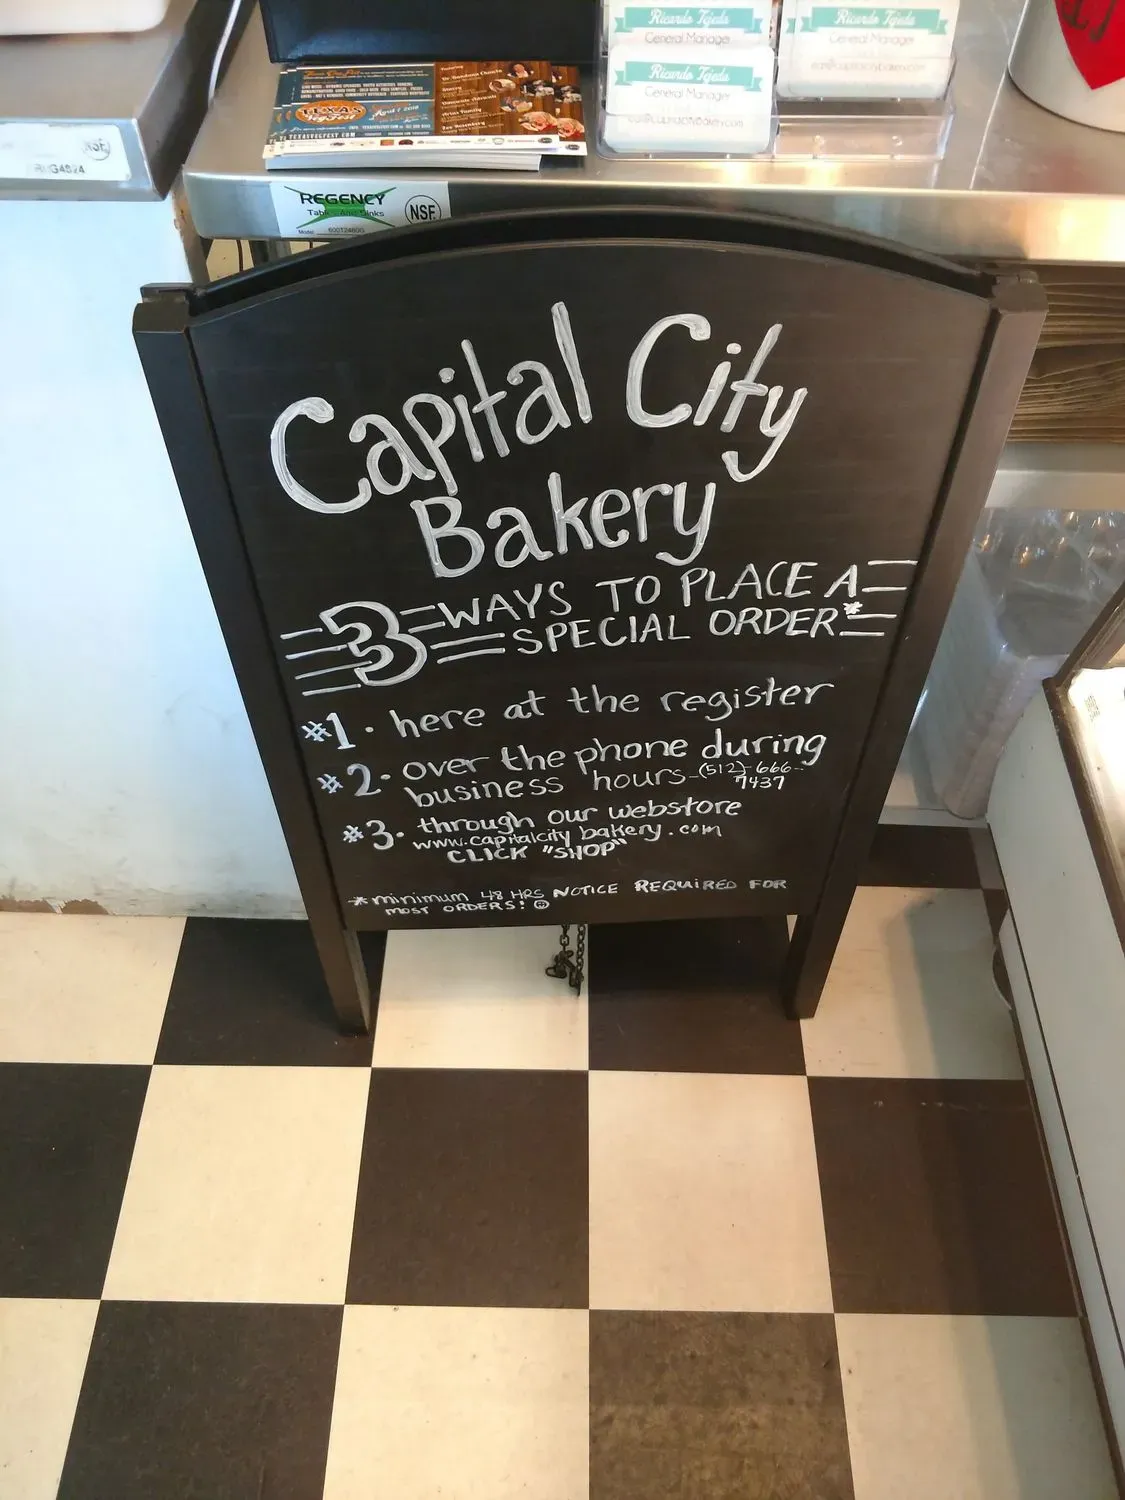 Ricardo Tejeda
General Manager
Ricardo Tejeda
General Manager
Ricardo Tejeda
General Manager
TEXAS
VegFest
TEXASVEGFEST.COM
NSF
REGENCY
Tables And Sinks
Model: 600T2460G
NSF
Capital City
Bakery
3 WAYS TO PLACE A
SPECIAL ORDER*
#1. here at the register
#2. over the phone during
business hours-(512)-666-
7437
#3. through our webstore
www.capitalcitybakery.com
CLICK "SHOP"
*minimum 48 HRS NOTICE REQUIRED FOR
MOST ORDERS! ☺